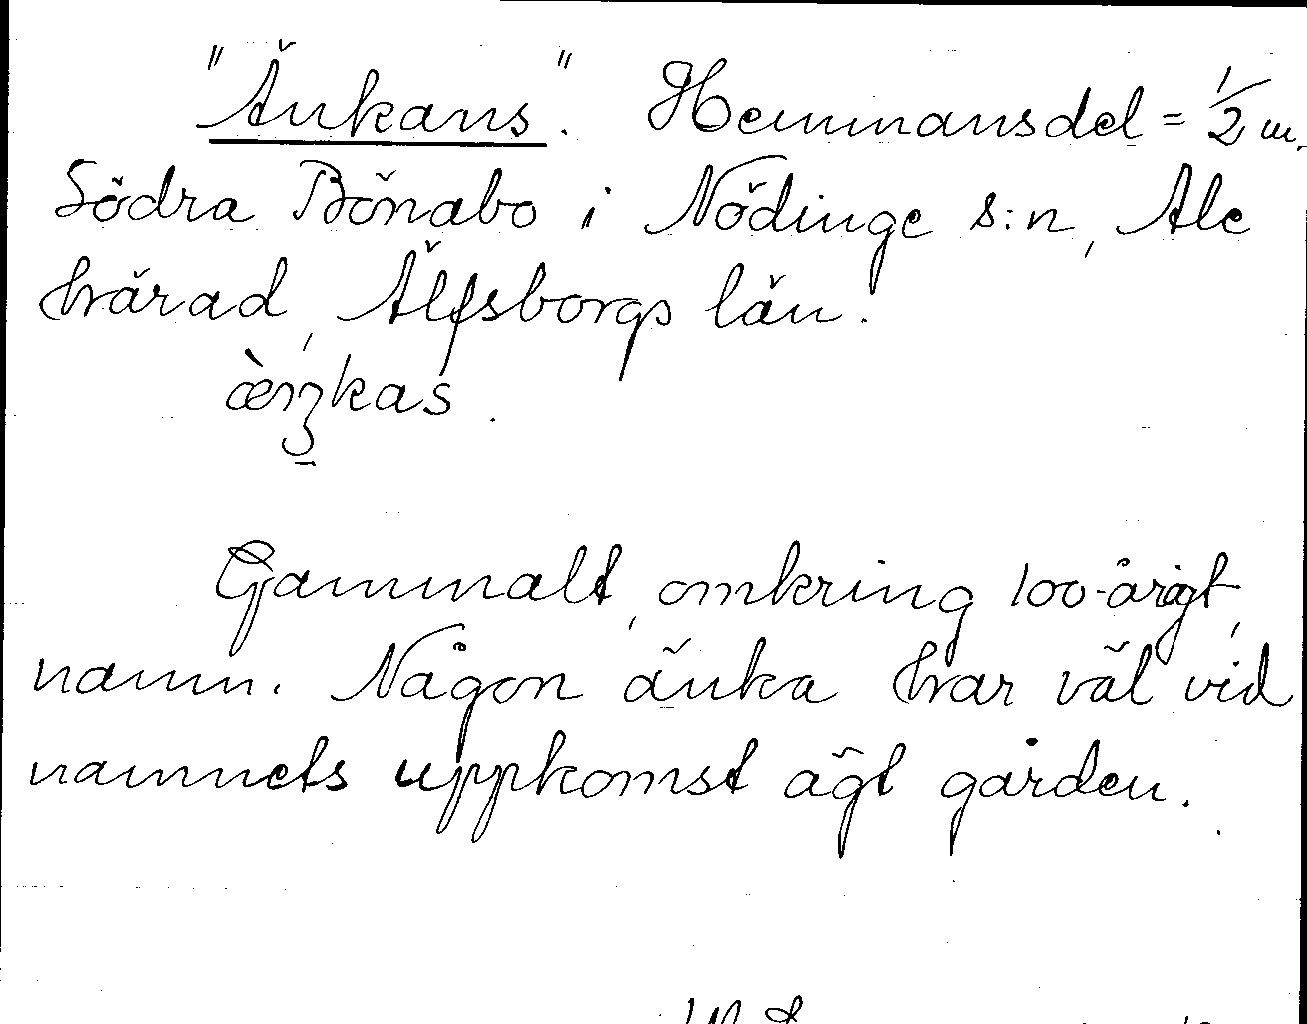 "Änkans". Hemmansdel = 1/2 m.
Södra Bönabo i Nödinge s:n, Ale
härad, Älfsborgs län.
Gammalt, omkring 100-årigt,
namn. Någon änka har väl vid
namnets uppkomst ägt gården.